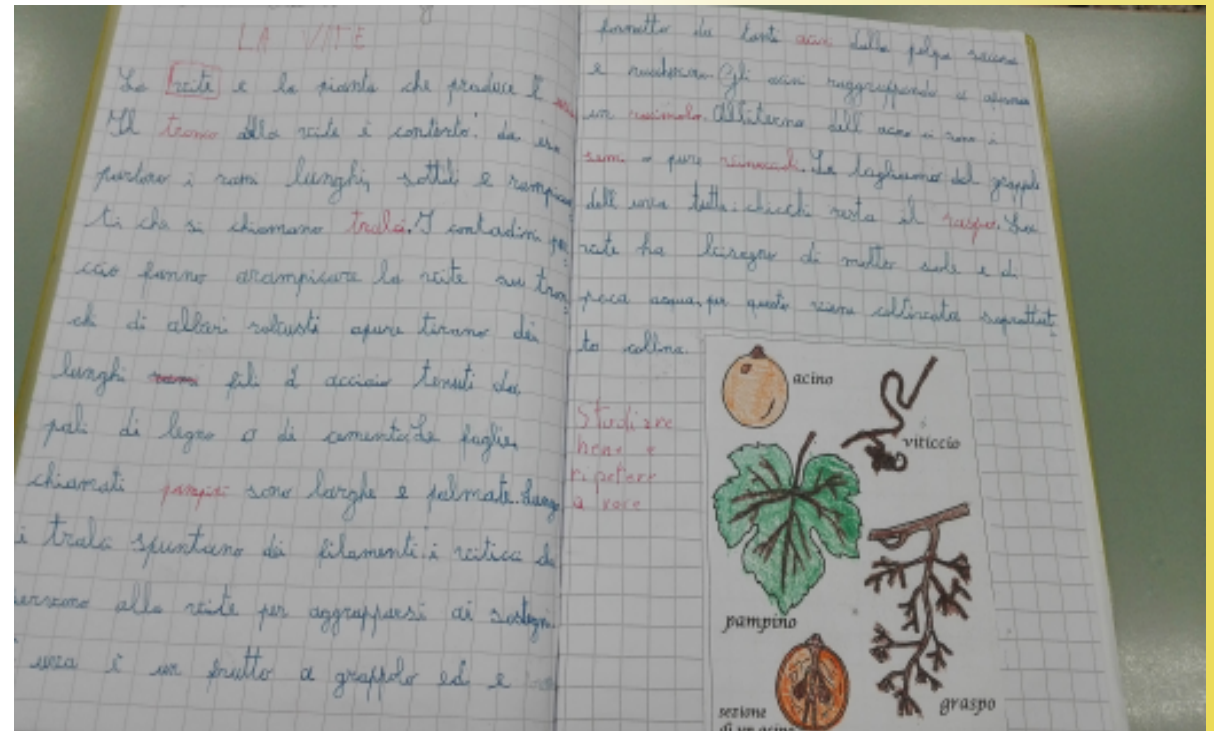 LA VITE
La vite e la pianta che produce l'
Il tronco della vite è contorto: da
partono i rami lunghi, sottili e rampican
ti che si chiamano tralci. I contadini per
ciò fanno arampicare la vite su tron
chi di alberi robusti opure tirano dei
lunghi rami fili d acciaio tenuti da
pali di legno o di cemento. Le foglie
chiamati pampini sono larghe e palmate. Lungo
i tralci spuntano dei filamenti: i viticci che
servono alla vite per aggrapparsi ai sostegni.
uva è un frutto a grappolo ed e
formatto da tanti acini dalla polpa
e zuccherina. Gli acini raggruppando si
un racimolo. All'iterno dell acino ci sono i
semi o pure vinaccioli. Se togliamo dal grappolo
dell uva tutti i chicchi resta il raspo. La
vite ha bisogno di molto sole e di
poca acqua, per questo viene coltivata soprattut
to collina.
Studiare
bene e
ripetere
a voce
acino
viticcio
pampino
graspo
sezione
di un acino